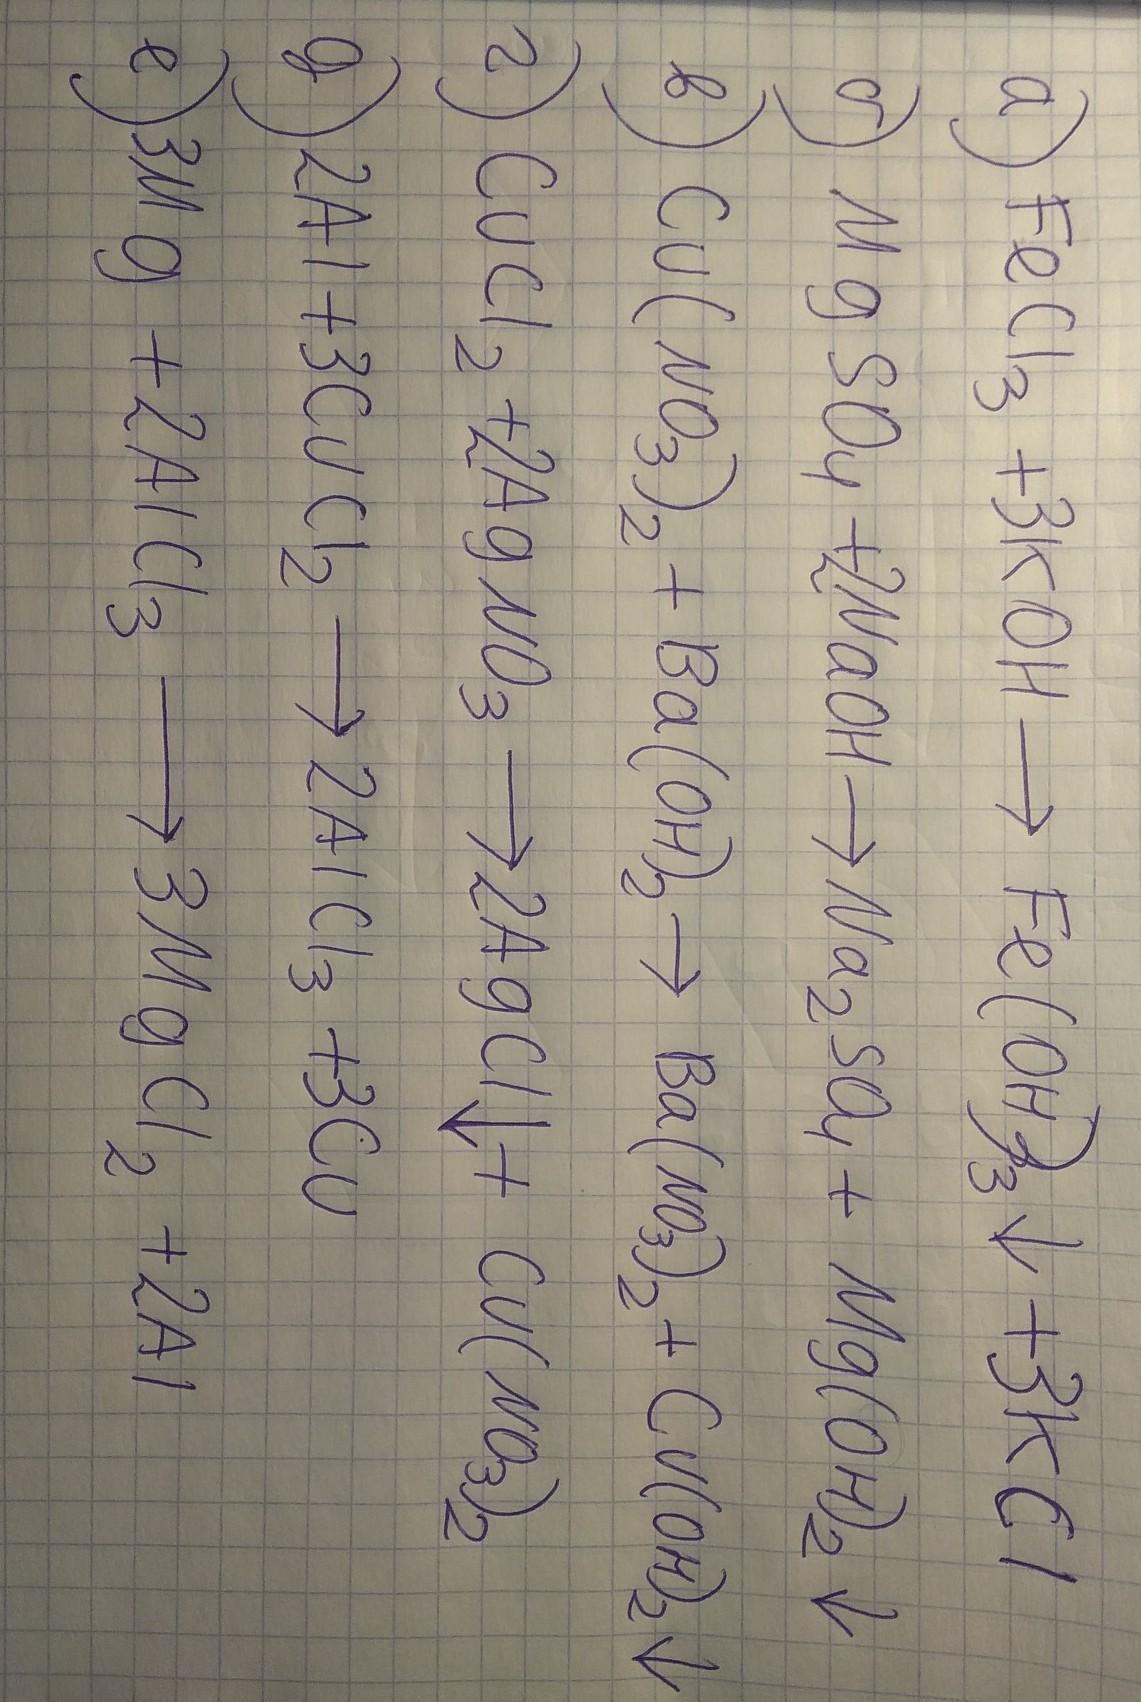 а) FeCl₃ + 3KOH → Fe(OH)₃ ↓ + 3KCl
б) MgSO₄ + 2NaOH → Na₂SO₄ + Mg(OH)₂ ↓
в) Cu(NO₃)₂ + Ba(OH)₂ → Ba(NO₃)₂ + Cu(OH)₂ ↓
г) CuCl₂ + 2AgNO₃ → 2AgCl ↓ + Cu(NO₃)₂
д) 2Al + 3CuCl₂ → 2AlCl₃ + 3Cu
е) 3Mg + 2AlCl₃ → 3MgCl₂ + 2Al